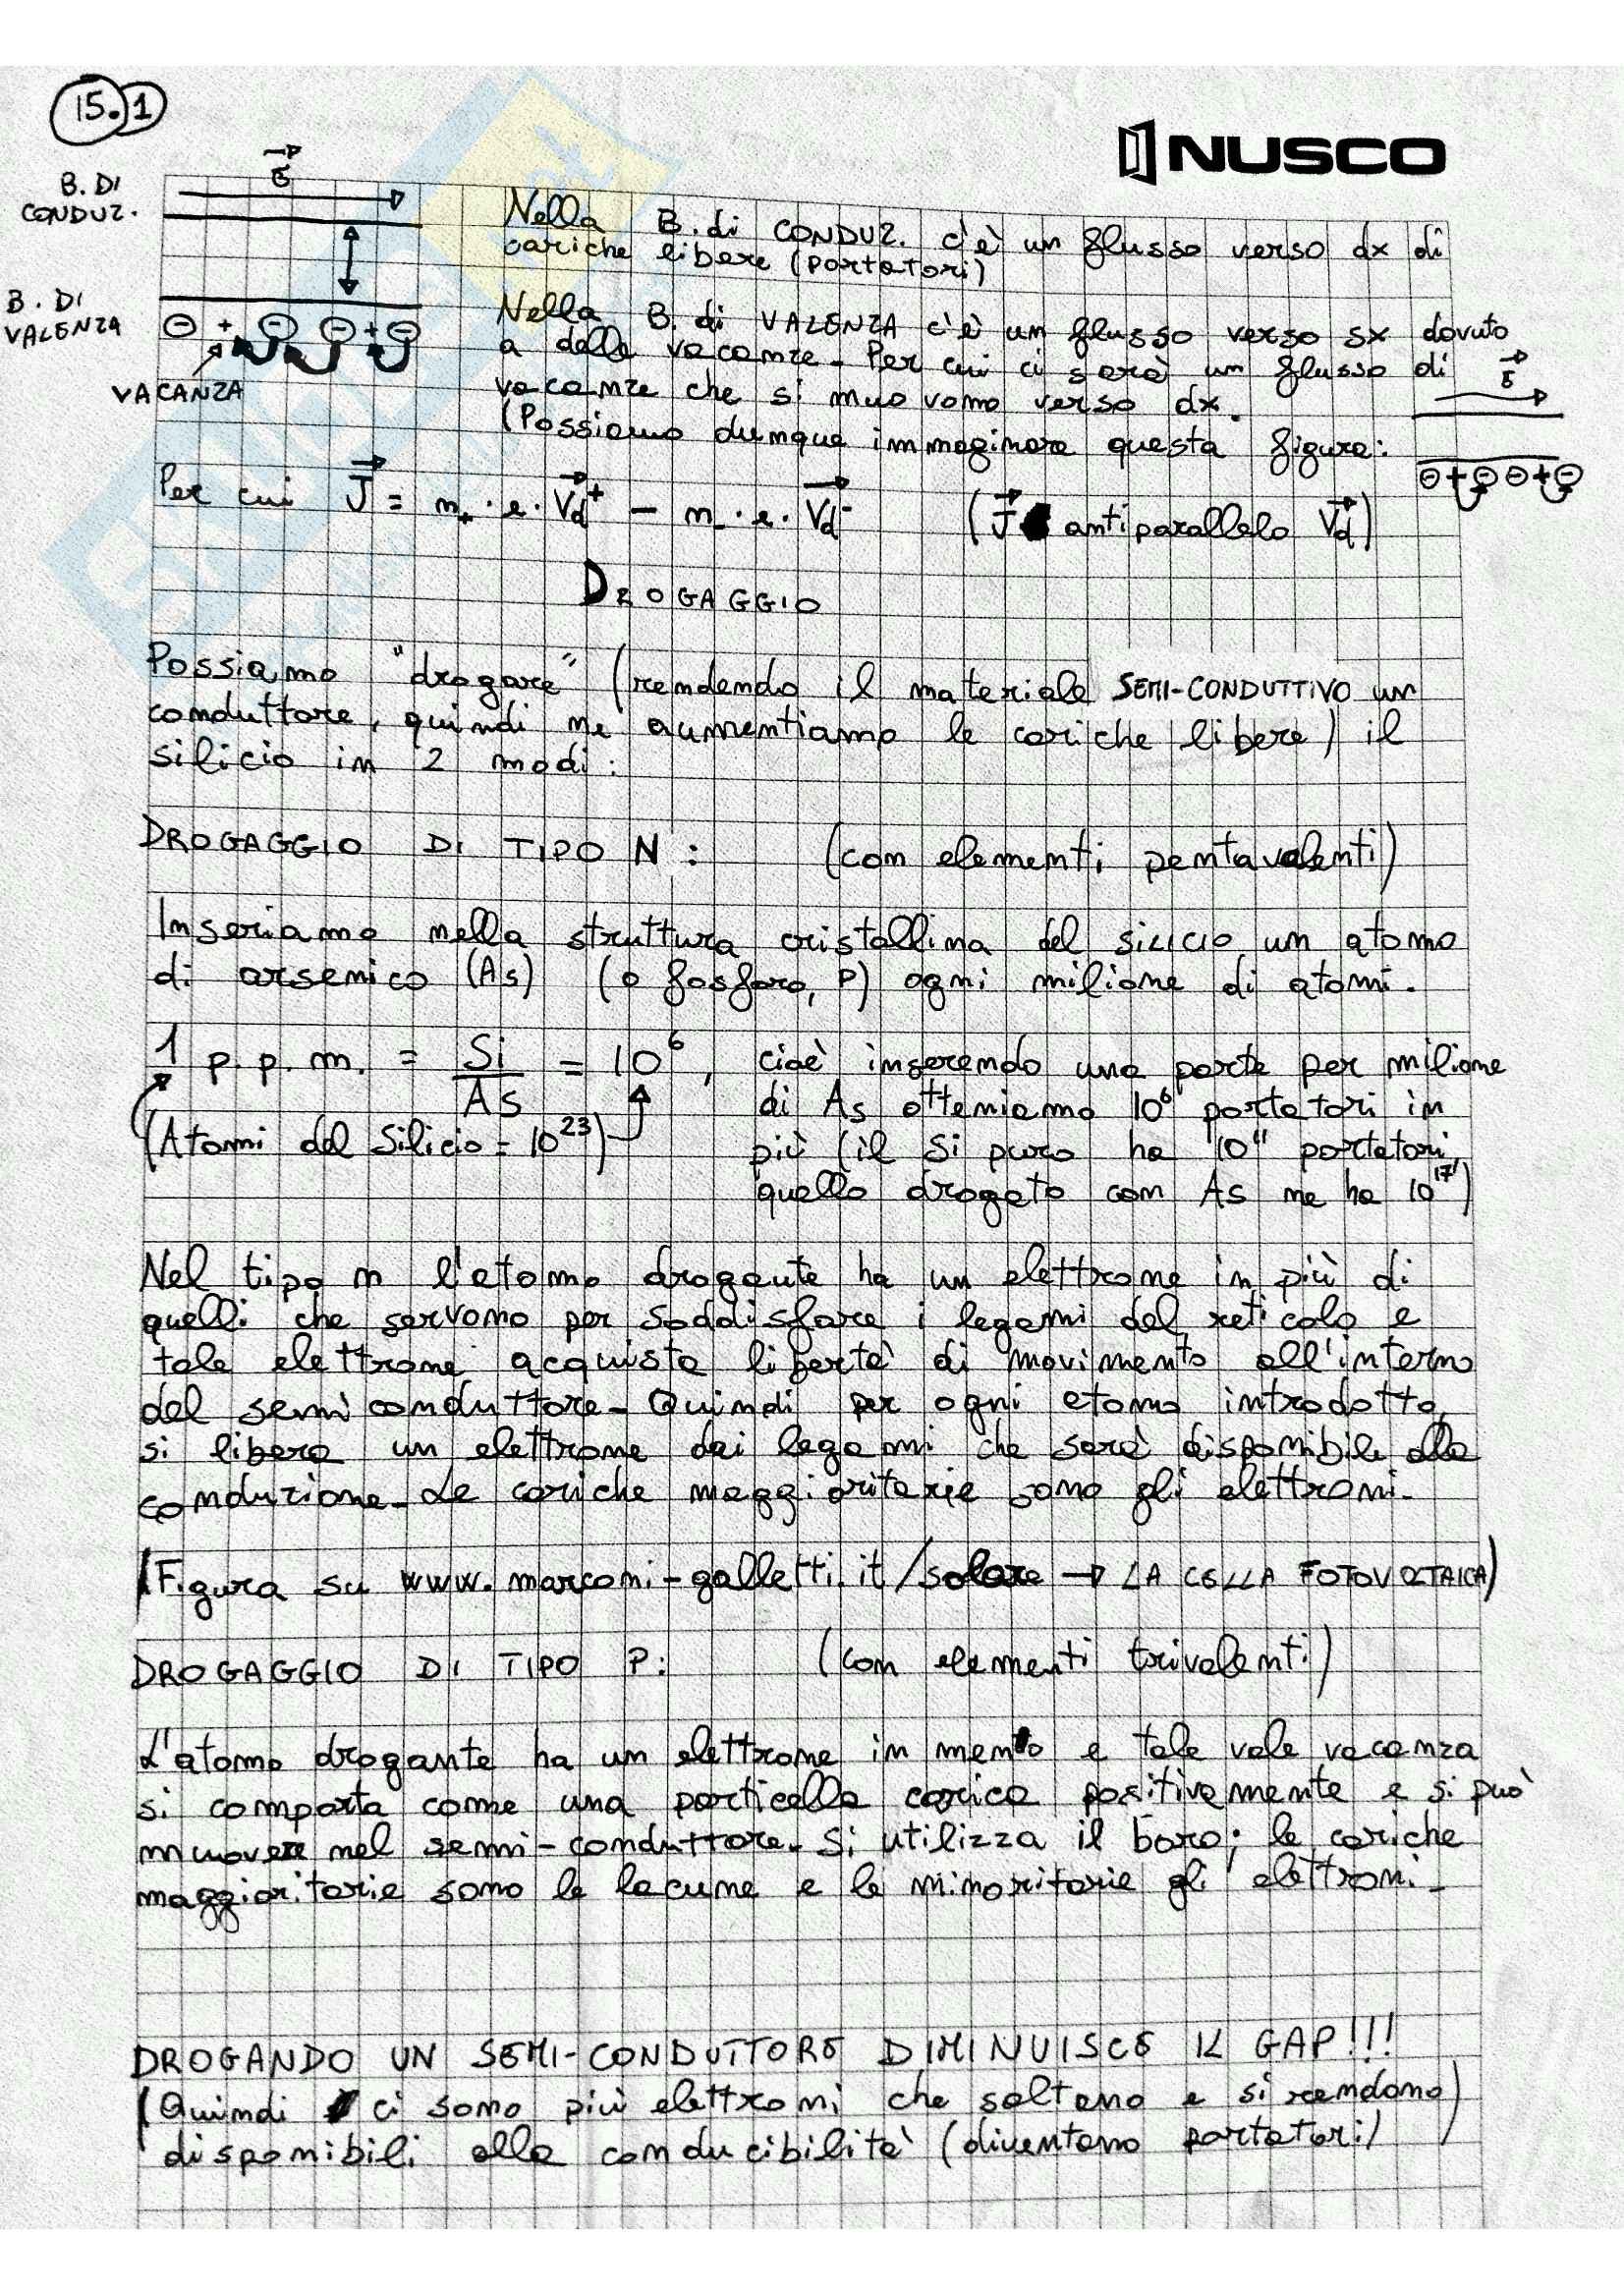 15.1
NUSCO
B. DI
CONDUZ.
E
Nella B. di CONDUZ. c'è un flusso verso dx di
cariche libere (portatori)
B. DI
VALENZA
VACANZA
Nella B. di VALENZA c'è un flusso verso sx dovuto
a delle vacanze. Per cui ci sarà un flusso di
vacanze che si muovono verso dx.
(Possiamo dunque immaginare questa figura:
E
⊖ + ⊖ ⊖ + ⊖
Per cui J = n₊ · e · Vd⁺ − n₋ · e · Vd⁻ (J antiparallelo Vd)
DROGAGGIO
Possiamo "drogare" (rendendo il materiale SEMI-CONDUTTIVO un
conduttore, quindi ne aumentiamo le cariche libere) il
silicio in 2 modi:
DROGAGGIO DI TIPO N: (con elementi pentavalenti)
Inseriamo nella struttura cristallina del silicio un atomo
di arsenico (As) (o fosforo, P) ogni milione di atomi.
1 p.p.m. = Si/As = 10⁶, cioè inserendo una parte per milione
di As otteniamo 10⁶ portatori in
(Atomi del Silicio = 10²³)
più (il Si puro ha 10¹¹ portatori,
quello drogato con As ne ha 10¹⁷)
Nel tipo n l'atomo drogante ha un elettrone in più di
quelli che servono per soddisfare i legami del reticolo e
tale elettrone acquista libertà di movimento all'interno
del semiconduttore. Quindi per ogni atomo introdotto,
si libera un elettrone dai legami che sarà disponibile alla
conduzione. Le cariche maggioritarie sono gli elettroni.
(Figura su www.marconi-galletti.it/solare → LA CELLA FOTOVOLTAICA)
DROGAGGIO DI TIPO P: (con elementi trivalenti)
L'atomo drogante ha un elettrone in meno e tale vale vacanza
si comporta come una particella carica positivamente e si può
muovere nel semi-conduttore. Si utilizza il boro; le cariche
maggioritarie sono le lacune e le minoritarie gli elettroni.
DROGANDO UN SEMI-CONDUTTORE DIMINUISCE IL GAP!!!
(Quindi ci sono più elettroni che saltano e si rendono
disponibili alla conducibilità (diventano portatori)